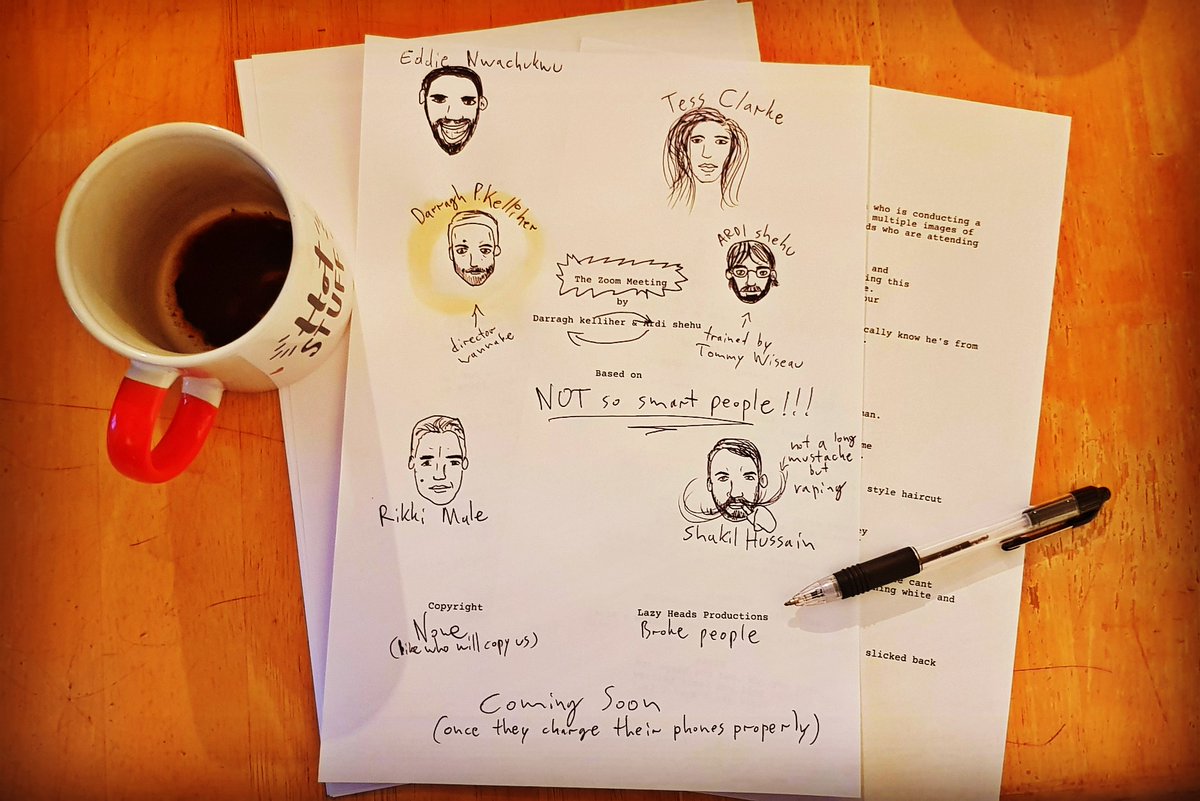 Eddie Nwachukwu
Tess Clarke
Darragh P. Kelliher
ARDI shehu
The Zoom Meeting
by
Darragh kelliher & Ardi shehu
director
wannabe
trained by
Tommy Wiseau
Based on
NOT so smart people!!!
not a long
mustache
but
vaping
Rikki Male
Shakil Hussain
Copyright
None
(like who will copy us)
Lazy Heads Productions
Broke people
Coming Soon
(once they charge their phones properly)
Hot
STUFF
who is conducting a
multiple images of
who are attending
and
this
cally know he's from
style haircut
cant
white and
slicked back